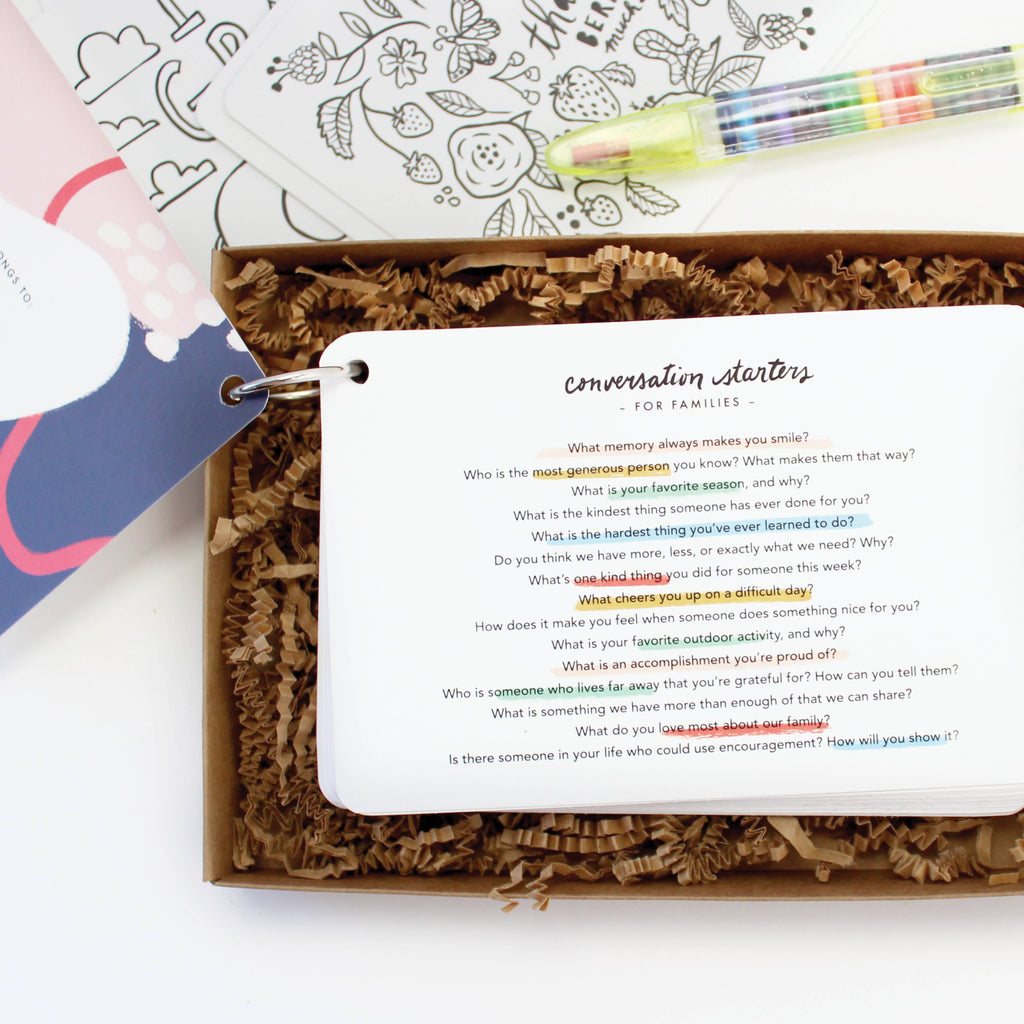 thank
BERRY
much
ONGS TO:
conversation starters
- FOR FAMILIES -
What memory always makes you smile?
Who is the most generous person you know? What makes them that way?
What is your favorite season, and why?
What is the kindest thing someone has ever done for you?
What is the hardest thing you've ever learned to do?
Do you think we have more, less, or exactly what we need? Why?
What's one kind thing you did for someone this week?
What cheers you up on a difficult day?
How does it make you feel when someone does something nice for you?
What is your favorite outdoor activity, and why?
What is an accomplishment you're proud of?
Who is someone who lives far away that you're grateful for? How can you tell them?
What is something we have more than enough of that we can share?
What do you love most about our family?
Is there someone in your life who could use encouragement? How will you show it?